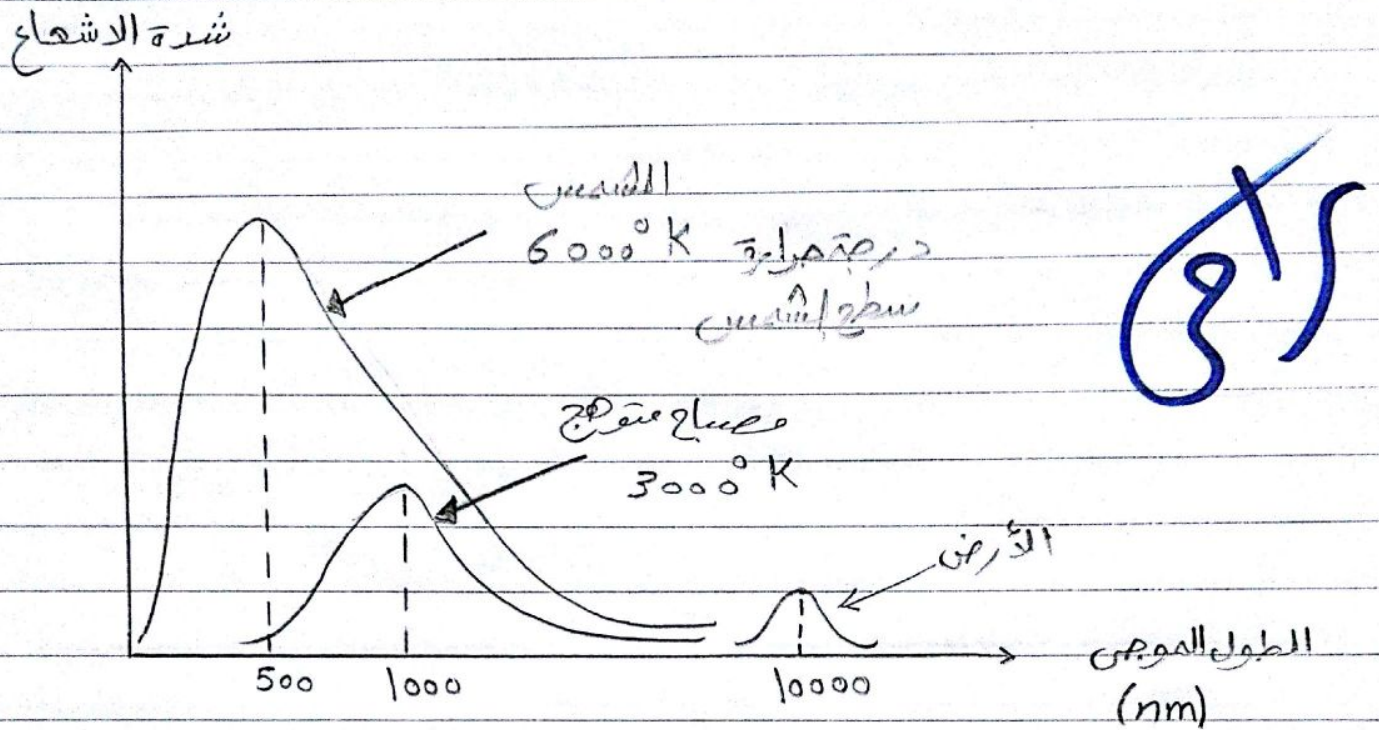 شدة الاشعاع
الشمس
6000°K درجة حرارة
سطح الشمس
مصباح متوهج
3000°K
الأرض
500 1000 10000
الطول الموجى
(nm)